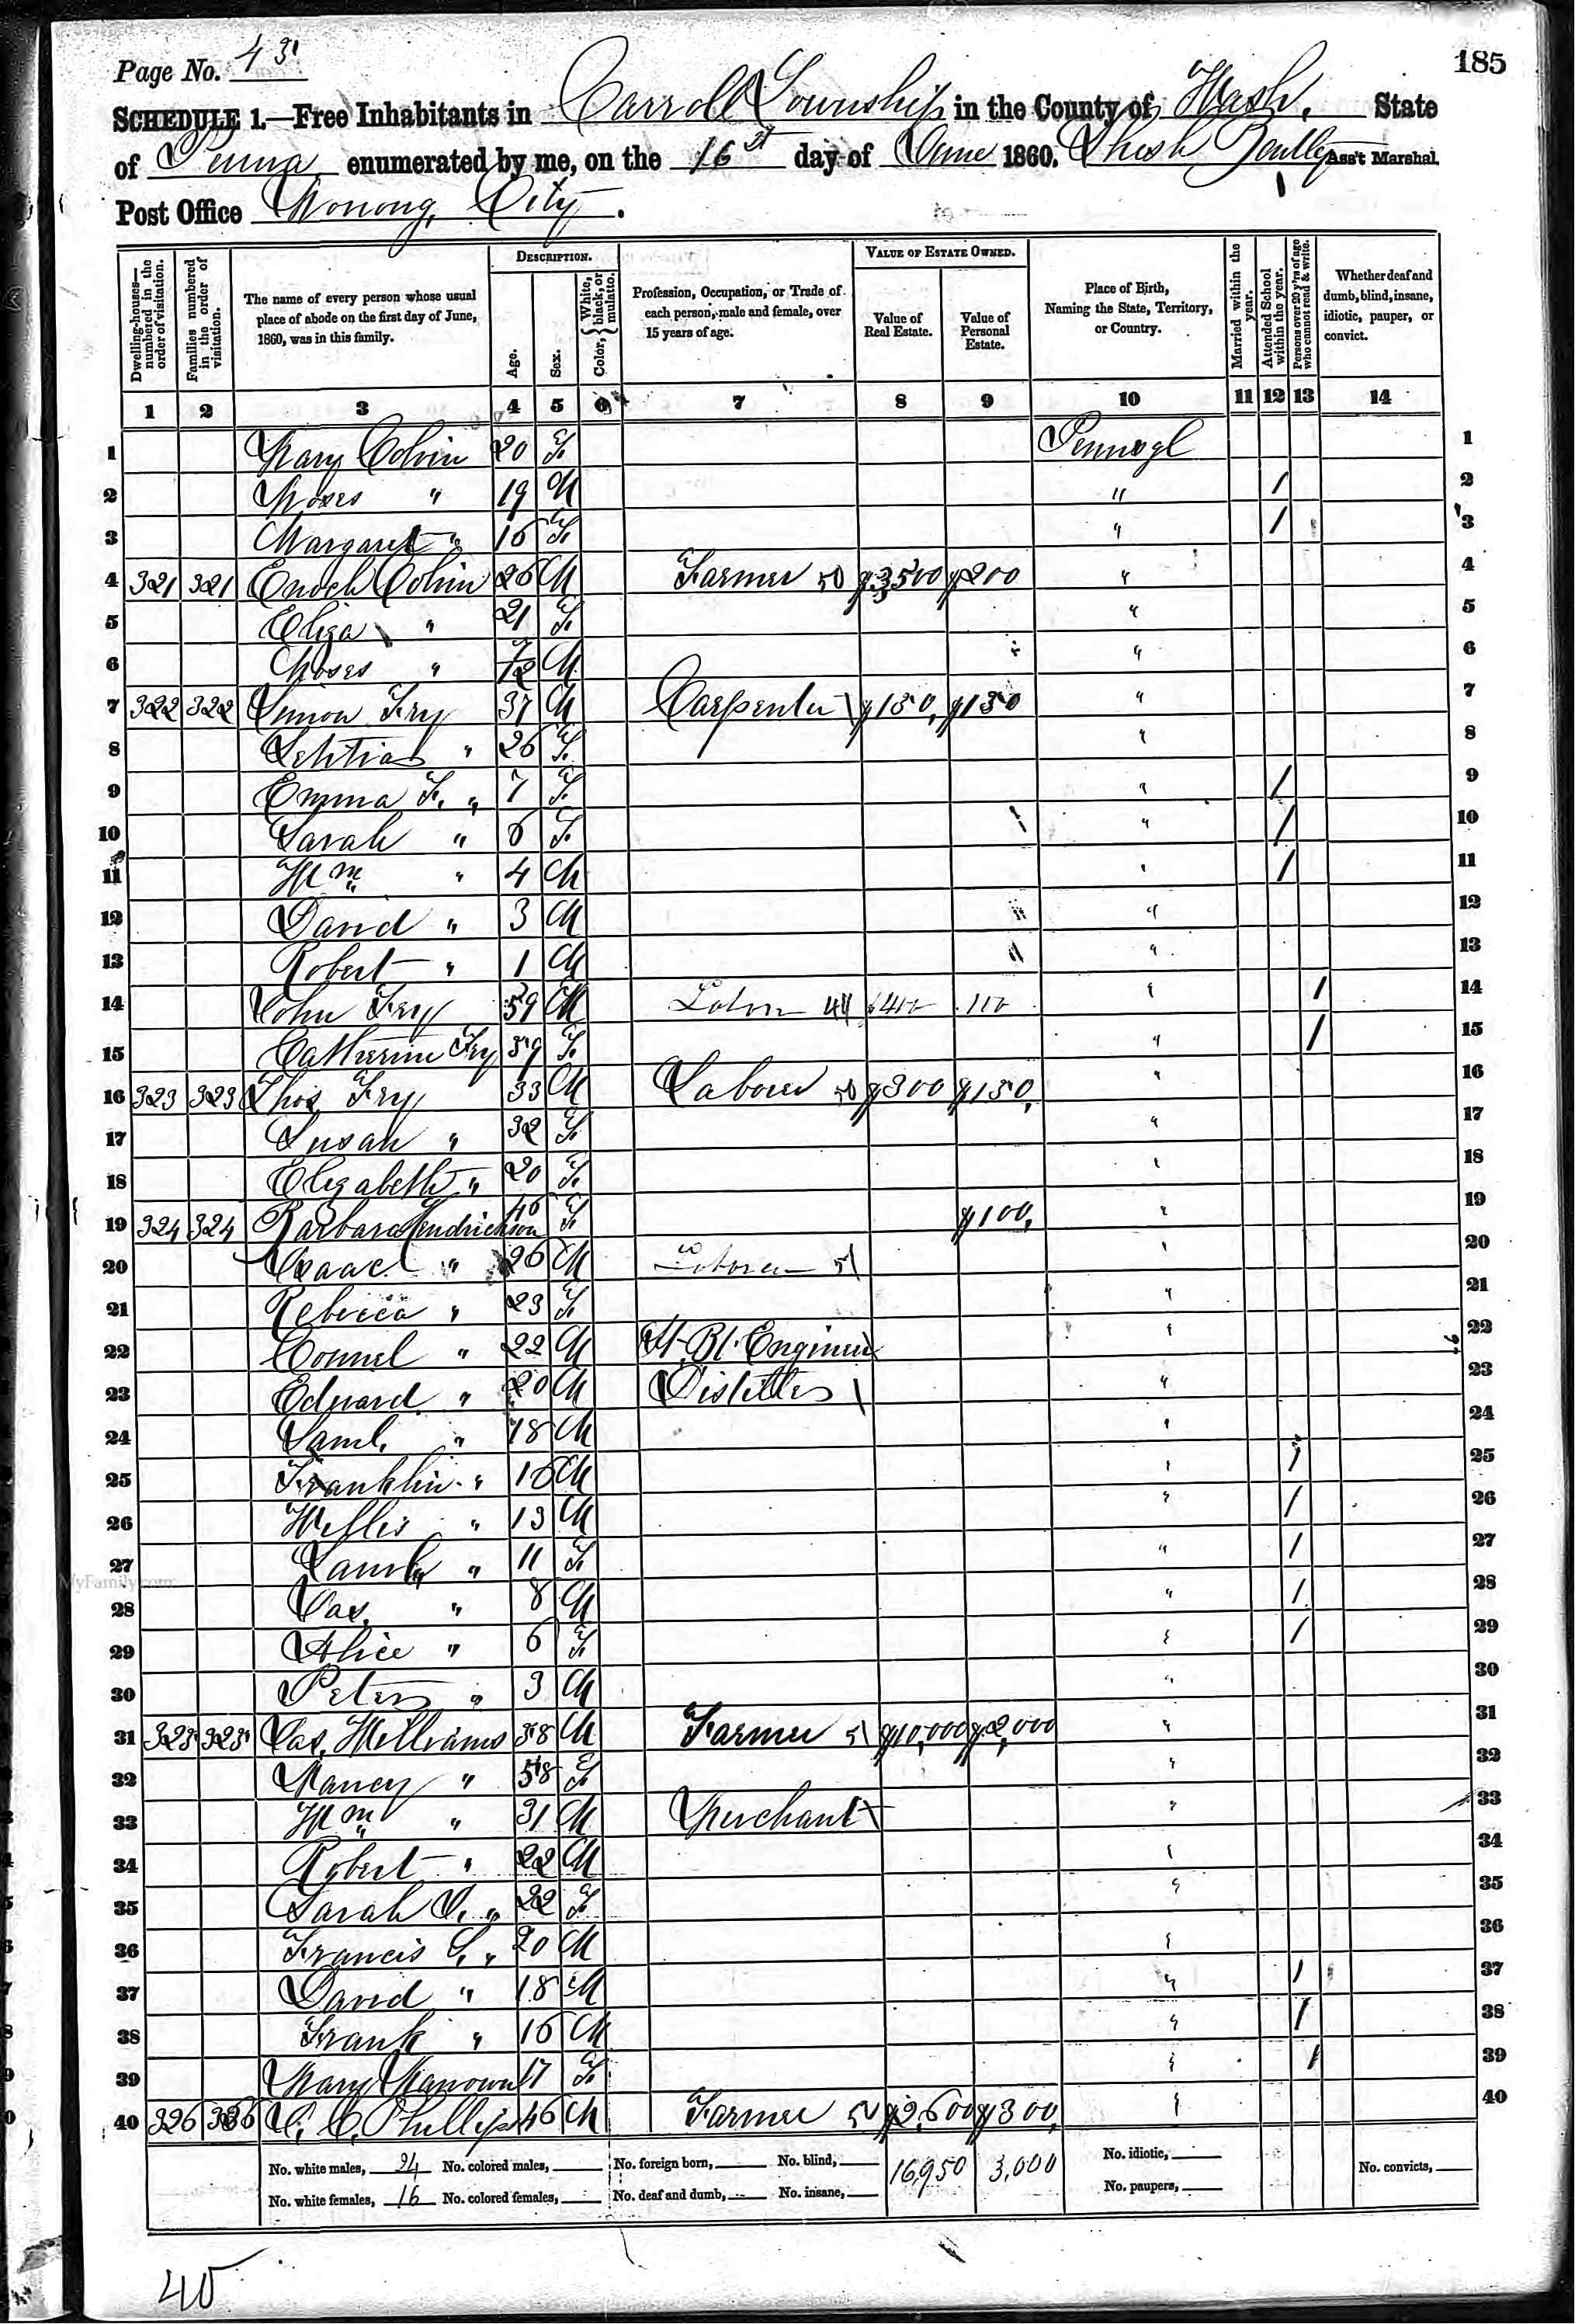 Page No. 43
185
SCHEDULE 1.—Free Inhabitants in Carroll Township in the County of Wash. State
of Penna enumerated by me, on the 16st day of June 1860. Ass't Marshal.
Post Office Monong. City.
Dwelling-houses—numbered in the order of visitation.
Families numbered in the order of visitation.
The name of every person whose usual place of abode on the first day of June, 1860, was in this family.
DESCRIPTION.
Age.
Sex.
Color, { White, black, or mulatto.
Profession, Occupation, or Trade of each person, male and female, over 15 years of age.
VALUE OF ESTATE OWNED.
Value of Real Estate.
Value of Personal Estate.
Place of Birth, Naming the State, Territory, or Country.
Married within the year.
Attended School within the year.
Persons over 20 y'rs of age who cannot read & write.
Whether deaf and dumb, blind, insane, idiotic, pauper, or convict.
1 2 3 4 5 6 7 8 9 10 11 12 13 14
1 Mary Colvin 20 F Pennsyl 1
2 Moses " 19 M " / 2
3 Margaret " 16 F " / 3
4 321 321 Enoch Colvin 26 M Farmer 50 $3500 $200 " 4
5 Eliza " 21 F " 5
6 Moses " 7/12 M " 6
7 322 322 Simon Fry 37 M Carpenter $150, $150 " 7
8 Letitia " 26 F " 8
9 Emma F. " 7 F " / 9
10 Sarah " 6 F " / 10
11 Wm " 4 M " / 11
12 David " 3 M " 12
13 Robert " 1 M " 13
14 John Fry 59 M Labor 44 400 100 " / 14
15 Catherine Fry 59 F " / 15
16 323 323 Thos Fry 33 M Laborer 50 $300 $150, " 16
17 Susan " 32 F " 17
18 Elizabeth " 20 F " 18
19 324 324 Barbara Hendrickson 46 F $100, " 19
20 Isaac " 26 M Laborer 51 " 20
21 Rebecca " 23 F " 21
22 Connel " 22 M Engineer " 22
23 Edward " 20 M Distiller " 23
24 Saml. " 18 M " 24
25 Franklin " 16 M " / 25
26 Willis " 13 M " / 26
27 " 11 F " / 27
28 Jas. " 8 M " / 28
29 Alice " 6 F " / 29
30 Peter " 3 M " 30
31 325 325 Jas. Williams 58 M Farmer 51 $10,000 $2,000 " 31
32 Nancy " 58 F " 32
33 Wm " 31 M Merchant " 33
34 Robert " 22 M " 34
35 Sarah J. " 22 F " 35
36 Francis C. " 20 M " 36
37 David " 18 M " / 37
38 Frank " 16 M " / 38
39 Mary Manown 17 F " / 39
40 326 326 Phillips 46 M Farmer 50 $2,600 $300, " 40
No. white males, 24 No. colored males, No. foreign born, No. blind, 16,950 3,000 No. idiotic, No. convicts,
No. white females, 16 No. colored females, No. deaf and dumb, No. insane, No. paupers,
MyFamily.com
40